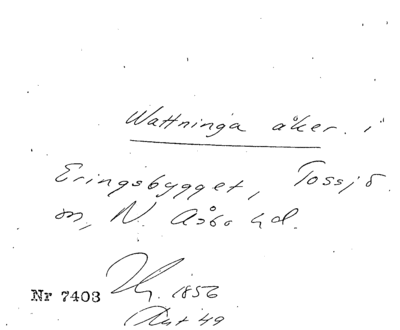 Wattninga åker i
Eringsbygget, Tossjö
sn, N. Åsbo hd.
Nr 7403 1856
49